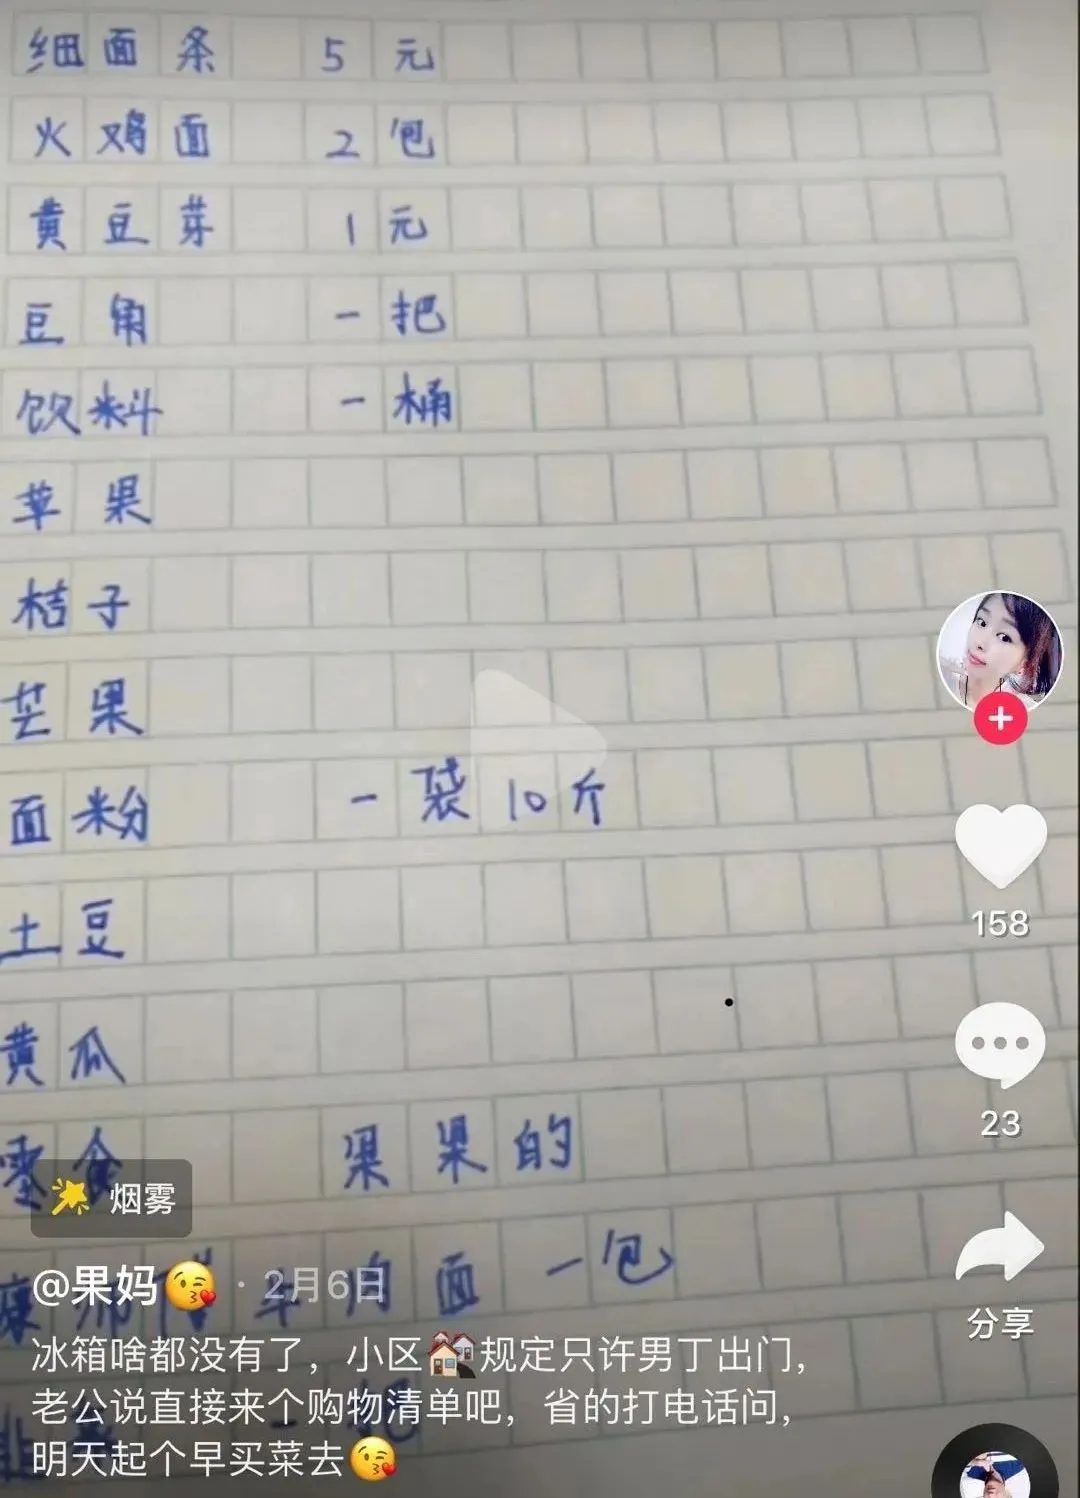 细面条 5元
火鸡面 2包
黄豆芽 1元
豆角 一把
饮料 一桶
苹果
桔子
芒果
面粉 一袋10斤
土豆
黄瓜
零食 果果的
烟雾
康 牛肉面 一包
@果妈😘 · 2月6日
冰箱啥都没有了，小区🏘️规定只许男丁出门，
老公说直接来个购物清单吧，省的打电话问，
一把
明天起个早买菜去😘
158
23
分享